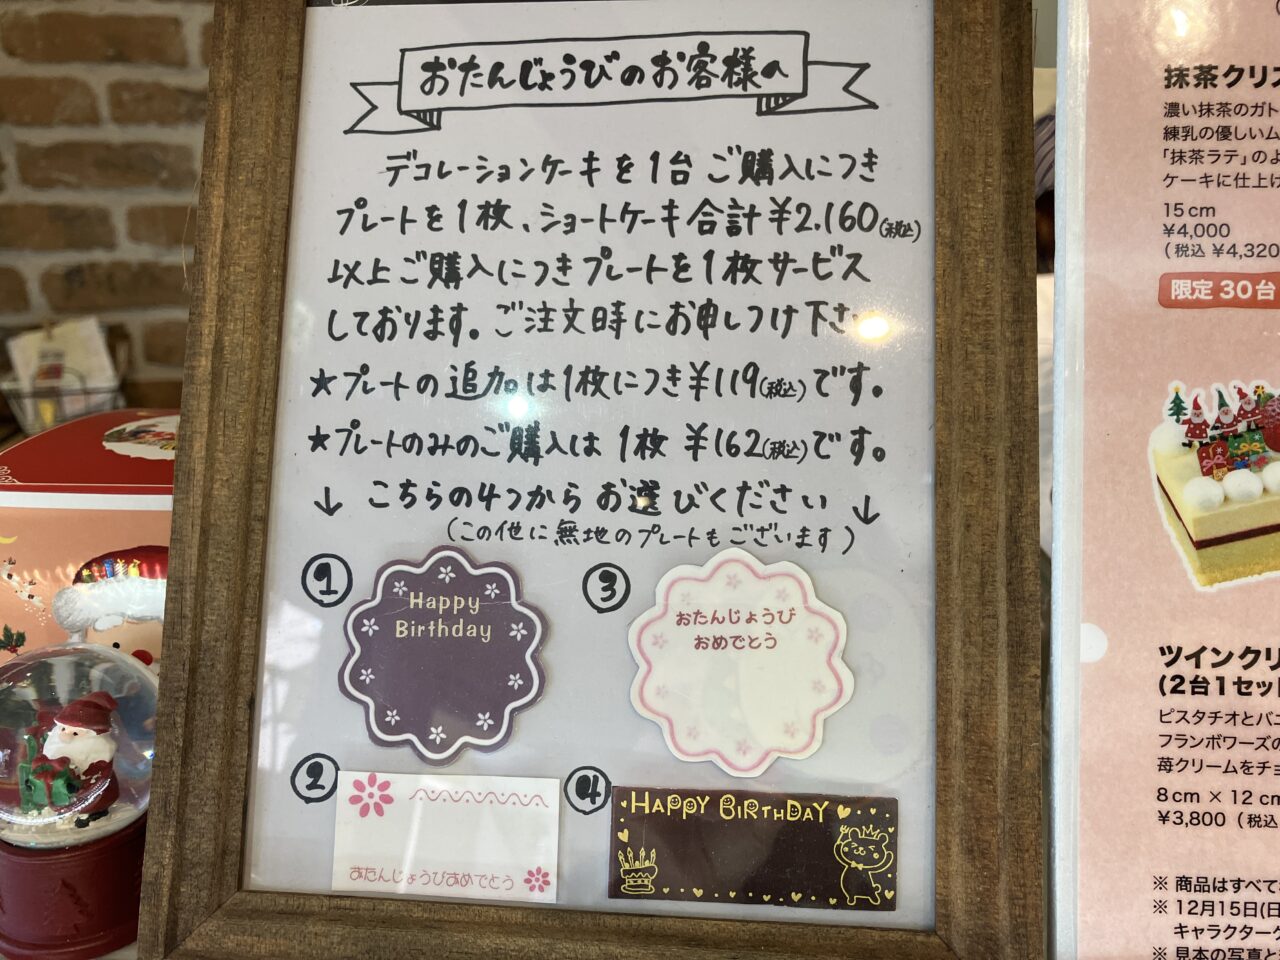 おたんじょうびのお客様へ
デコレーションケーキを1台ご購入につき
プレートを1枚、ショートケーキ合計¥2.160(税込)
以上ご購入につきプレートを1枚サービス
しております。ご注文時にお申しつけ下さ
★プレートの追加は1枚につき¥119(税込)です。
★プレートのみのご購入は1枚 ¥162(税込)です。
↓ こちらの4つからお選びください ↓
(この他に無地のプレートもございます)
①
Happy
Birthday
③
おたんじょうび
おめでとう
②
おたんじょうびおめでとう
④
HAPPY BIRTHDAY
抹茶クリス
濃い抹茶のガト
練乳の優しいム
「抹茶ラテ」のよ
ケーキに仕上げ
15cm
¥4,000
(税込 ¥4,320
限定30台
ツインクリ
(2台1セット
ピスタチオとバニ
フランボワーズの
苺クリームをチョ
8cm × 12cm
¥3,800 (税込
※ 商品はすべて
※ 12月15日(日
キャラクターケ
※ 見本の写真と